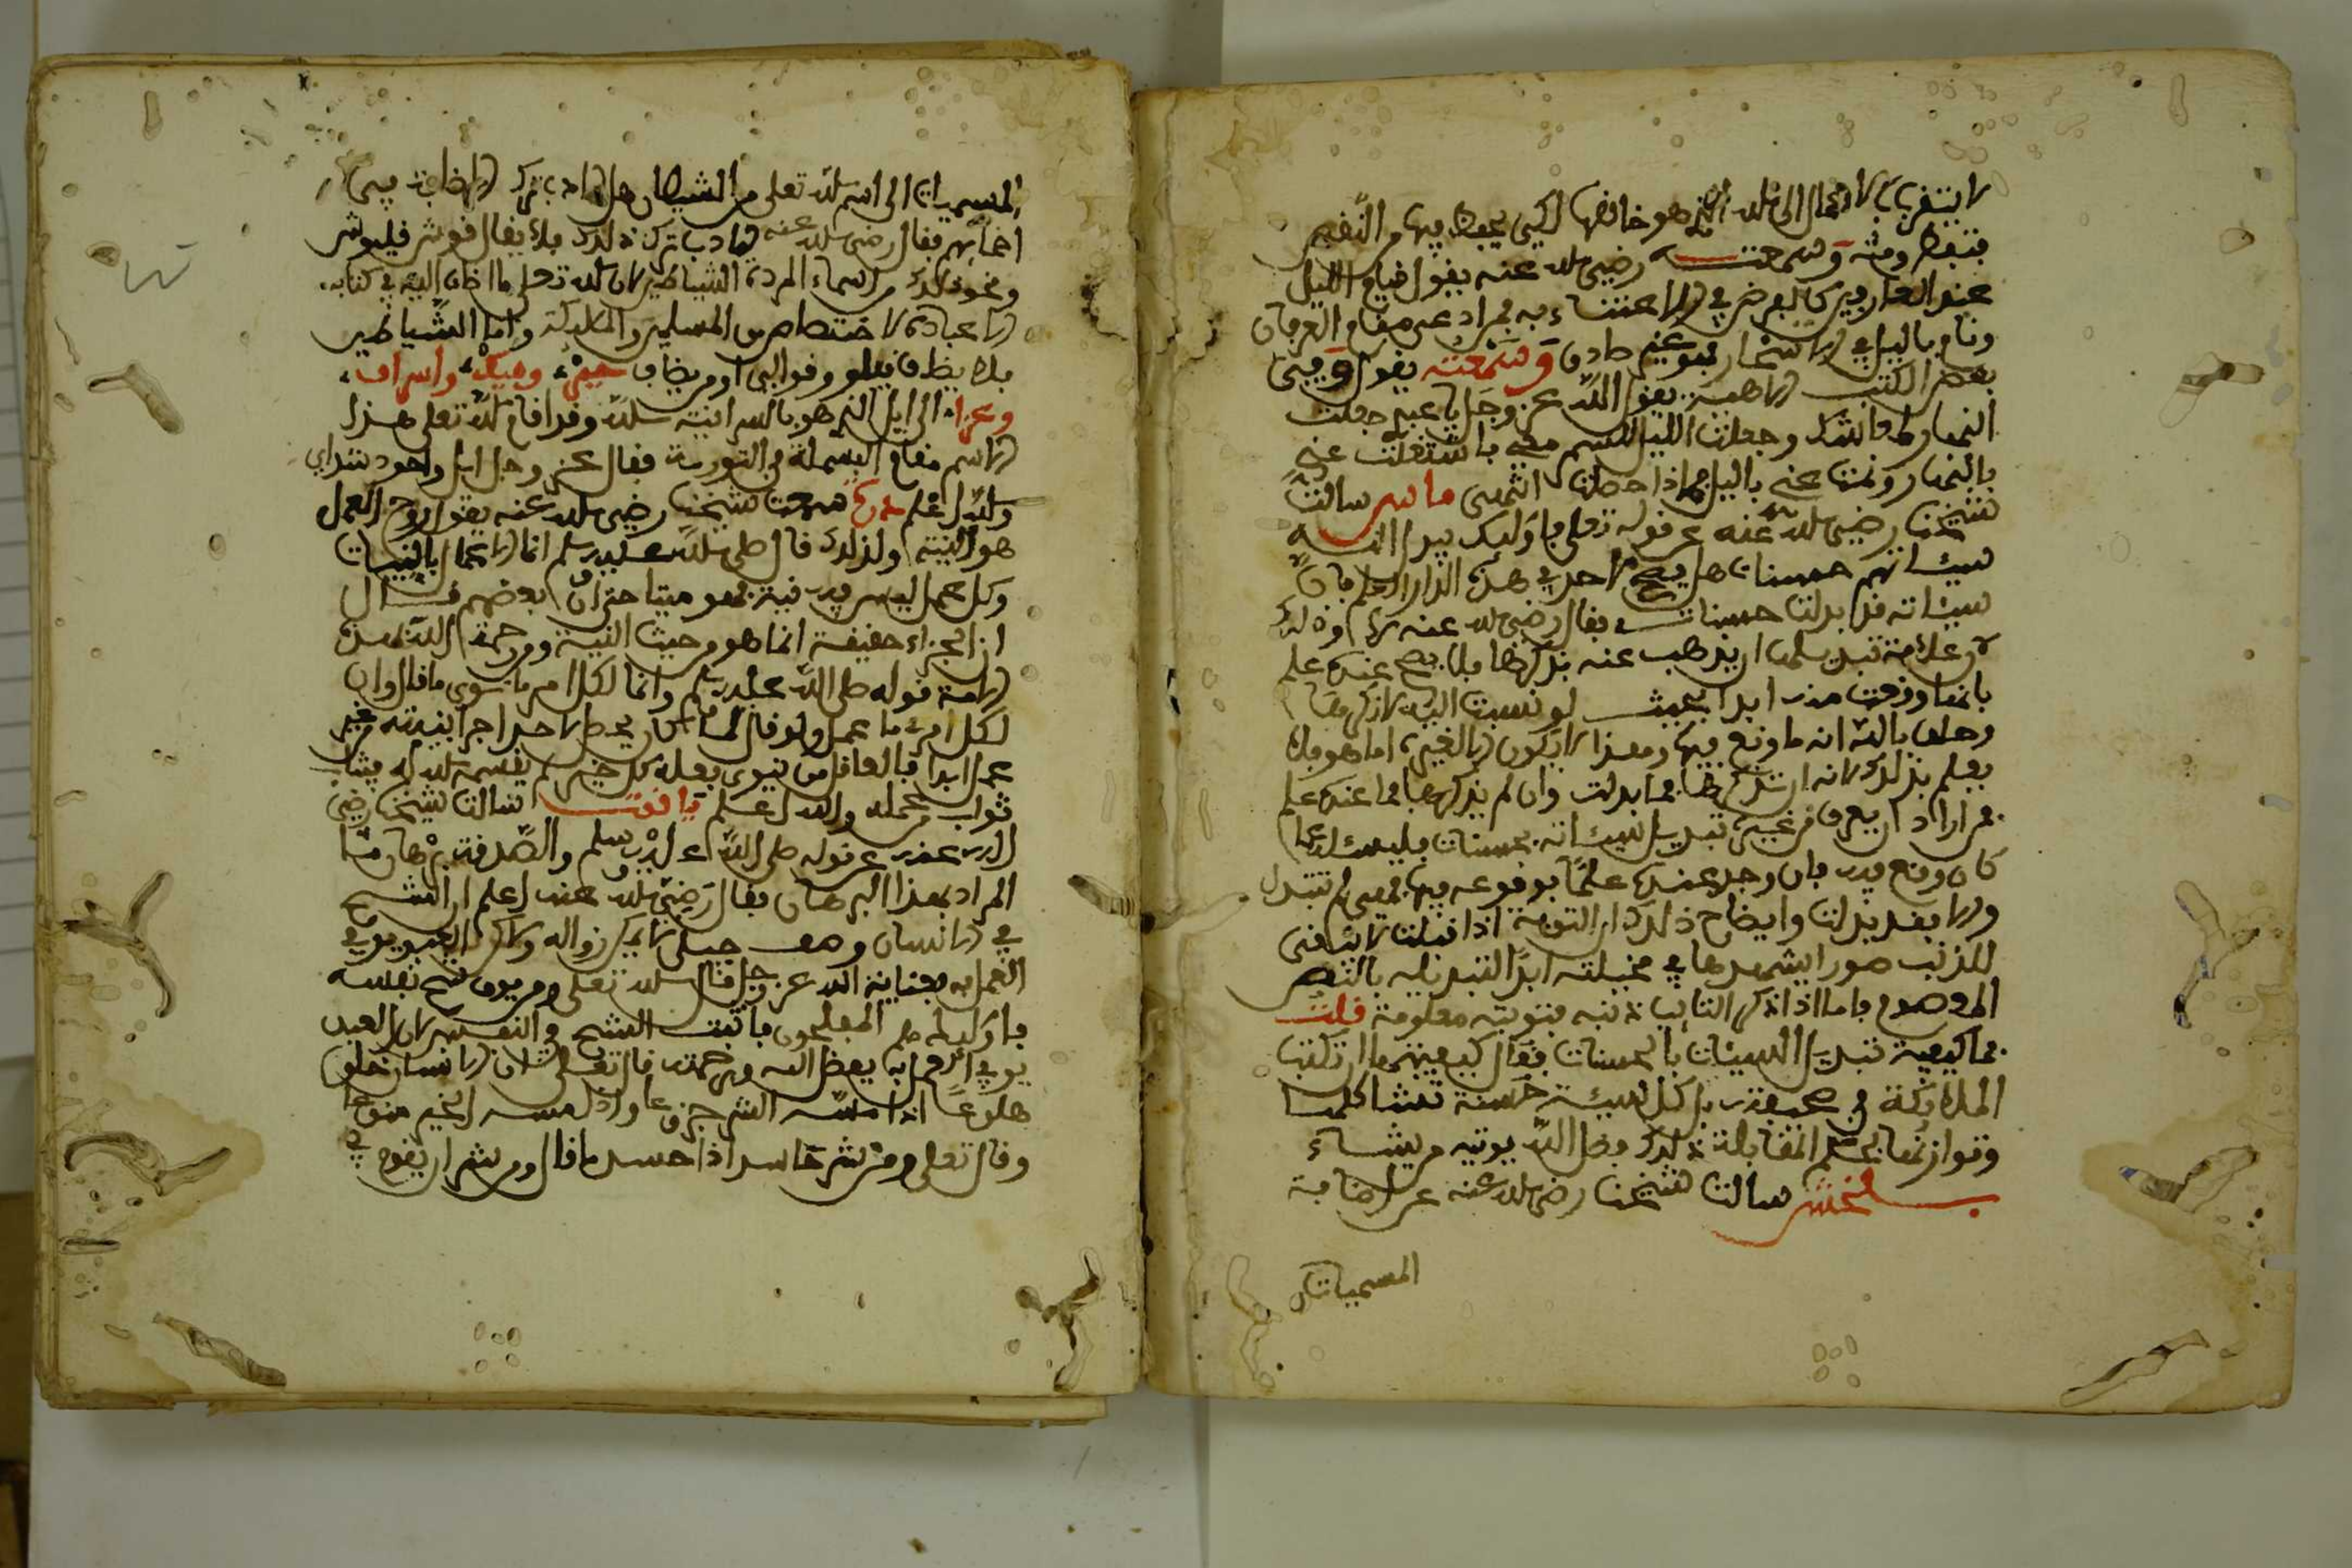 لا يتقرب بالاعمال الى الله الذي هو خالقها لكي يحفظ فيها من النقص
فتحفظ ومنه وسمعته رضي الله عنه يقول قيام الليل
عند العارفين كالفرض في الاعتناء به فمن ادعى مقام العرفان
ونام بالليل في الاسحار فهو غير صادق وسمعته يقول وفي
بعض الكتب الالهية يقول الله عز وجل يا عبدي جعلت
النهار لمعاشك وجعلت الليل للسمر معي فاشتغلت عني
بالنهار ونمت عني بالليل فماذا حصلت انتهى ماس سالت
شيخنا رضي الله عنه عن قوله تعلى فاولئك يبدل الله
سيئاتهم حسنات هل يصح لاحد في هذه الدار العلم بان
سيئاته قد ابدلت حسنات فقال رضي الله عنه نعم وذلك
لان علامة تبديلها ان يذهب عنه تذكرها فلا يصح عنده علم
بانها وقعت منه ابدا بحيث لو نسبت اليه لانكرها
وحلف بالله انه ما وقع فيها ومعذا لا يكون الا لغيره اما هو فلا
يعلم بذلك لانه ان تذكرها فما بدلت وان لم يذكرها فما عنده علم
فمن اراد ان يعرف من غيره تبديل سيئاته بحسنات فليسئله عما
كان وقع فيه فان وجد عنده علما بوقوعه فيها فهي لم تتبدل
والا فقد بدلت وايضاح ذلك ان التوبة اذا قبلت لا تبقي
للذنب صورا يشهدها في مخيلته ابدا لتبدله بالنص
المعصوم فاما اذا ذكر التايب ذنبه فتوبته معلومة قلت
فما كيفية تبديل السيئات بالحسنات فقال كيفيتها ان تكتب
الملائكة في صحيفته بدل كل سيئة حسنة تشاكلها
وتوازنها بحكم المقابلة ذلك فضل الله يوتيه من يشاء
بلخش سالت شيخنا رضي الله عنه عن اضافة
المسميات
المسميات الى اسم الله تعلى من الشيطان هل الادب ترك الاضافة في
اضافتهم فقال رضي الله عنه الادب ترك ذلك فلا يقال
ونحو ذلك من اسماء المردة الشياطين لان الله تعلى ما اضاف اليه في كتابه
الا عباده الاختصاص من المسلمين والملائكة واما الشياطين
فلا يضاف وقولي او من يضاف جبر وميك واسراف
وعزرا الى ايل الذي هو بالسريانية الله وقد اقام الله تعلى هذا
الاسم مقام البسملة في التورية فقال عز وجل ايل واحود
والله اعلم سمعت شيخنا رضي الله عنه يقول روح العمل
هو النية ولذلك قال صلى الله عليه وسلم انما الاعمال بالنيات
وكل عمل ليس فيه نية فهو ميتا حتى ان بعضهم قال
ان الجزاء حقيقة انما هو من حيث النية ومن رحمة الله بهذه
الامة قوله صلى الله عليه وسلم وانما لكل امرء ما نوى ما قال وان
لكل امرء ما عمل ولو قال لما كان يحصل لاحد اجرا بنيته من غير
عمل ابدا فالعاقل من ينوي بفعله كل خير لم يقسمه الله له فيثاب
ثواب من عمله والله اعلم ياقوت سالت شيخنا رضي
الله عنه عن قوله صلى الله عليه وسلم والصدقة برهان ما
المراد بهذا البرهان فقال رضي الله عنه اعلم ان الشح
في الانسان وصف جبلي لا يمكن زواله ولاكن العبد يوقى
العمل به بعناية الله عز وجل قال الله تعلى ومن يوق شح نفسه
فاولئك هم المفلحون فاثبت الشح في النفس الا ان العبد
يوقى العمل به بفضل الله ورحمته قال تعلى ان الانسان خلق
هلوعا اذا مسه الشر جزوعا واذا مسه الخير منوعا
وقال تعلى ومن شر حاسد اذا حسد ما قال ومن شر ان يقوم في